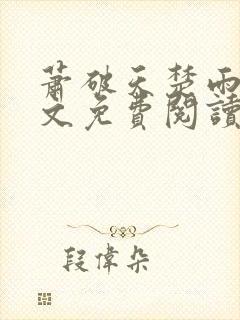 蕭破天楚雨
文免費閱讀
段偉朵